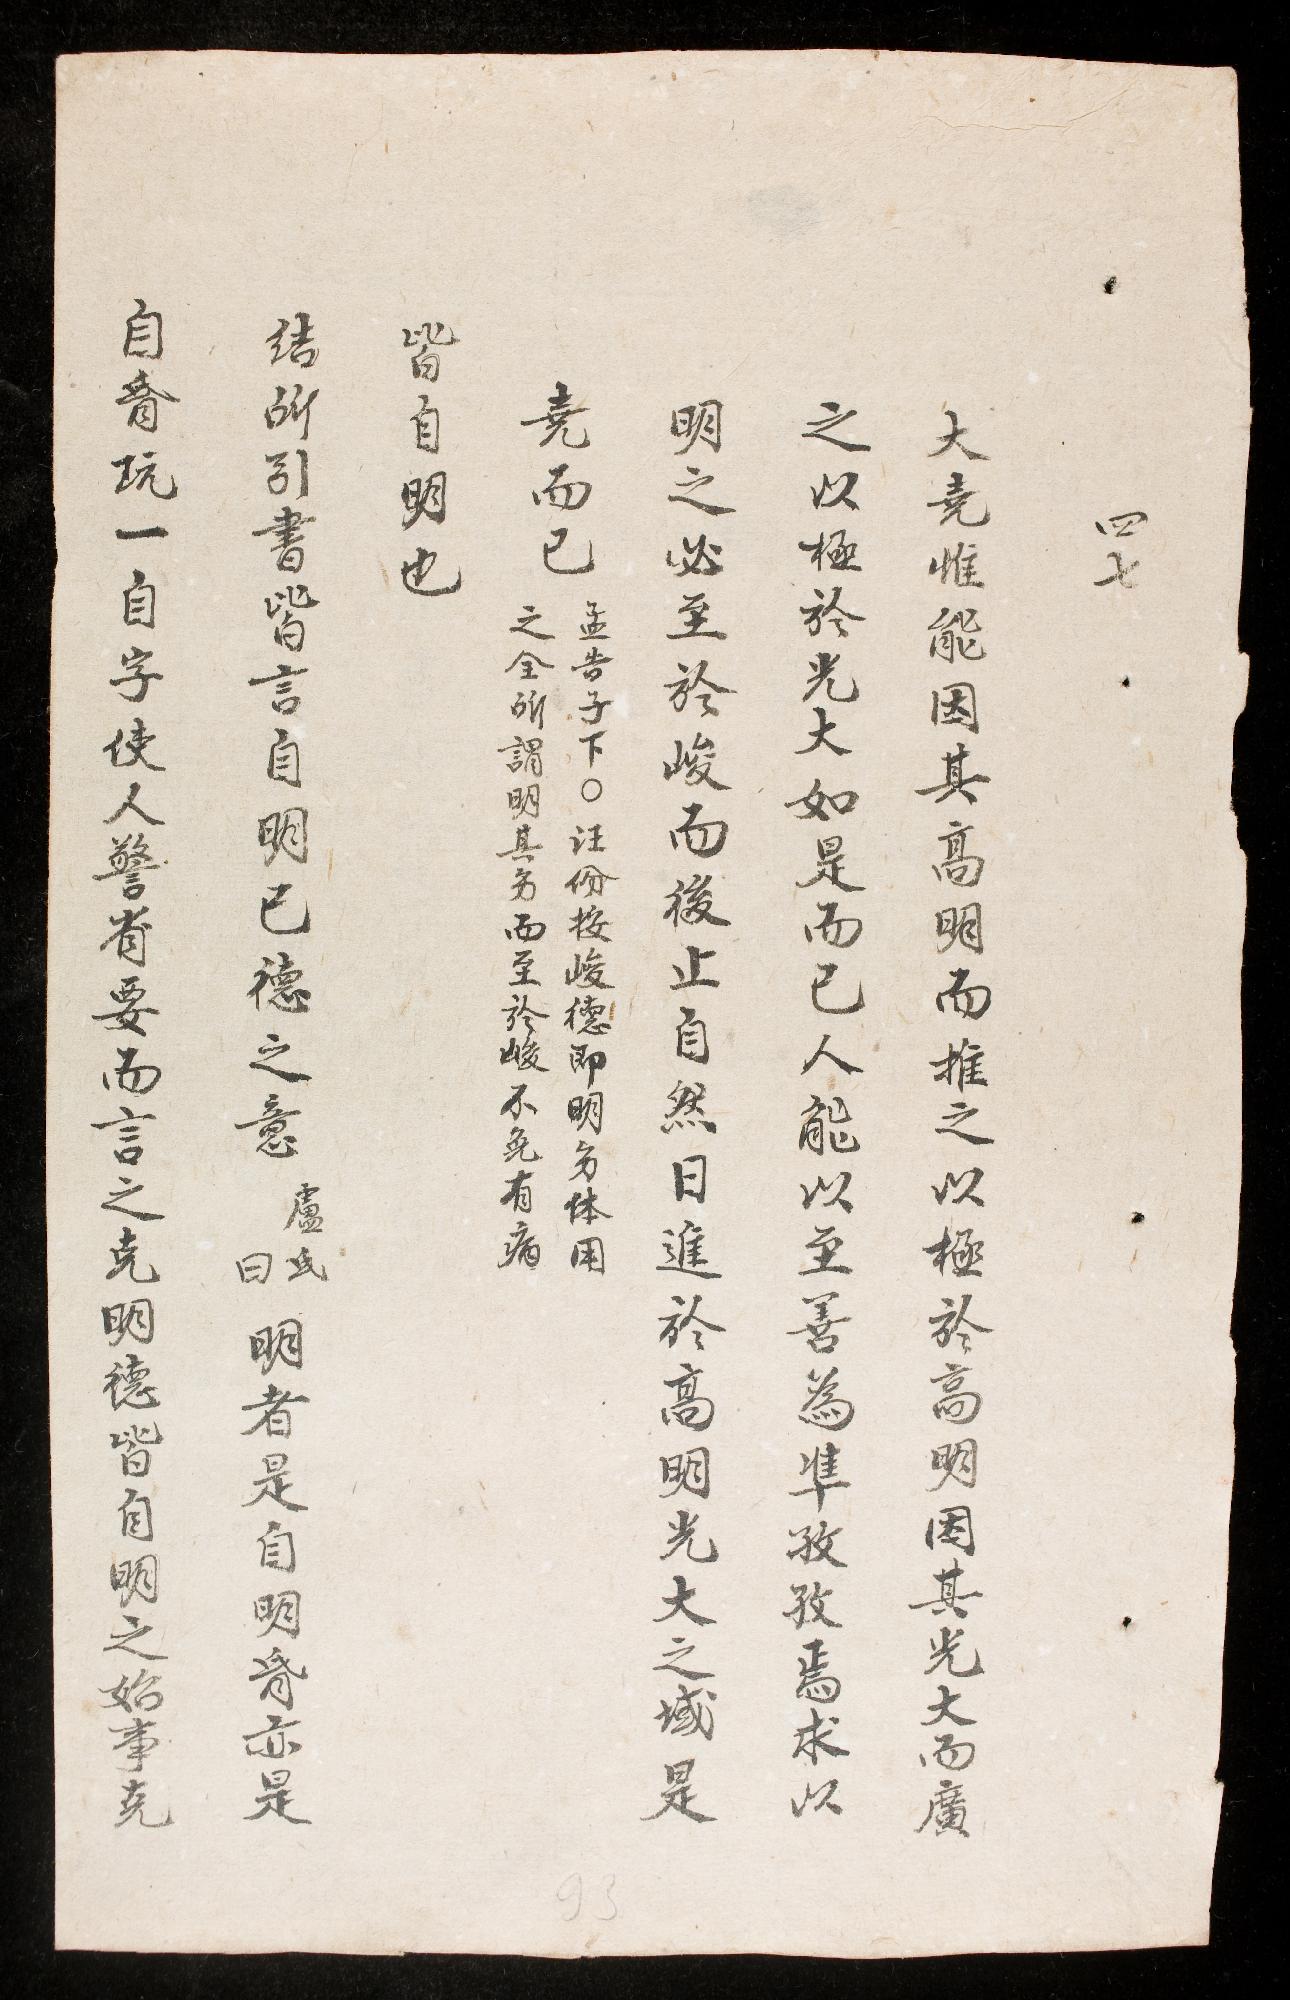 四七
大堯惟能因其高明而推之以極於高明因其光大而廣
之以極於光大如是而已人能以至善為準孜孜焉求以
明之必至於峻而後止自然日進於高明光大之域是
堯而已
孟告子下○汪份按峻德即明多体用
之全所謂明其多而至於峻不免有病
皆自明也
结所引書皆言自明已德之意
盧氏
曰
明者是自明昏亦是
自昏玩一自字使人警省要而言之克明德皆自明之始事克
93